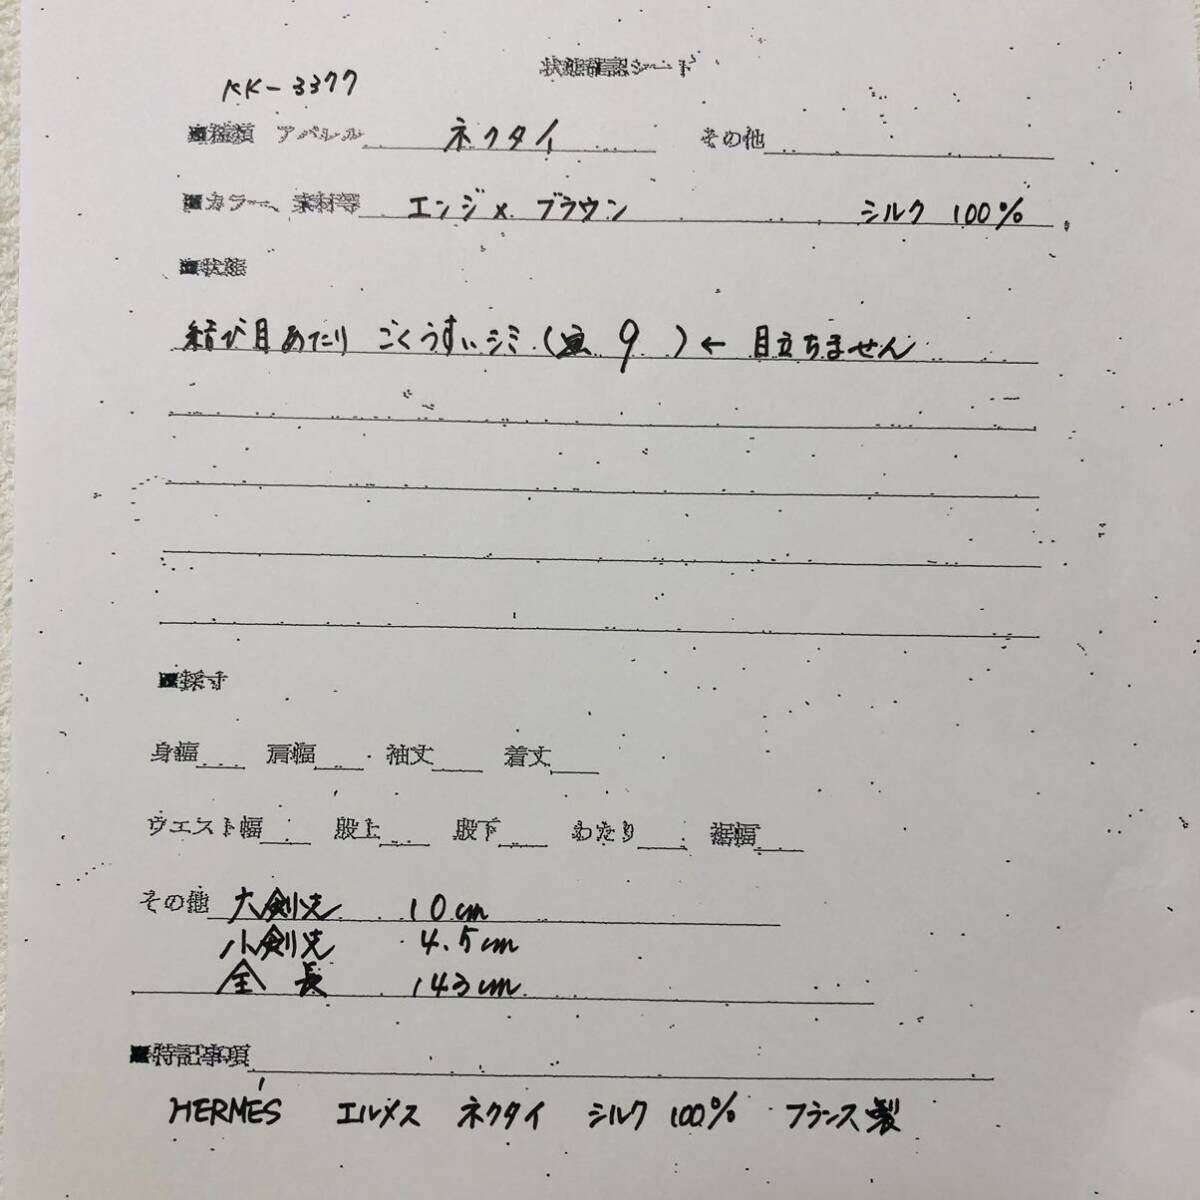 状態確認シート
KK-3377
■種類 アパレル ネクタイ その他
■カラー、素材等 エンジ × ブラウン シルク 100%
■状態
結び目あたり ごくうすいシミ ( 9 ) ← 目立ちません
■採寸
身幅 肩幅 袖丈 着丈
ウエスト幅 股上 股下 わたり 裾幅
その他 大剣先 10cm
小剣先 4.5cm
全長 143cm
■特記事項
HERMÈS エルメス ネクタイ シルク 100% フランス製